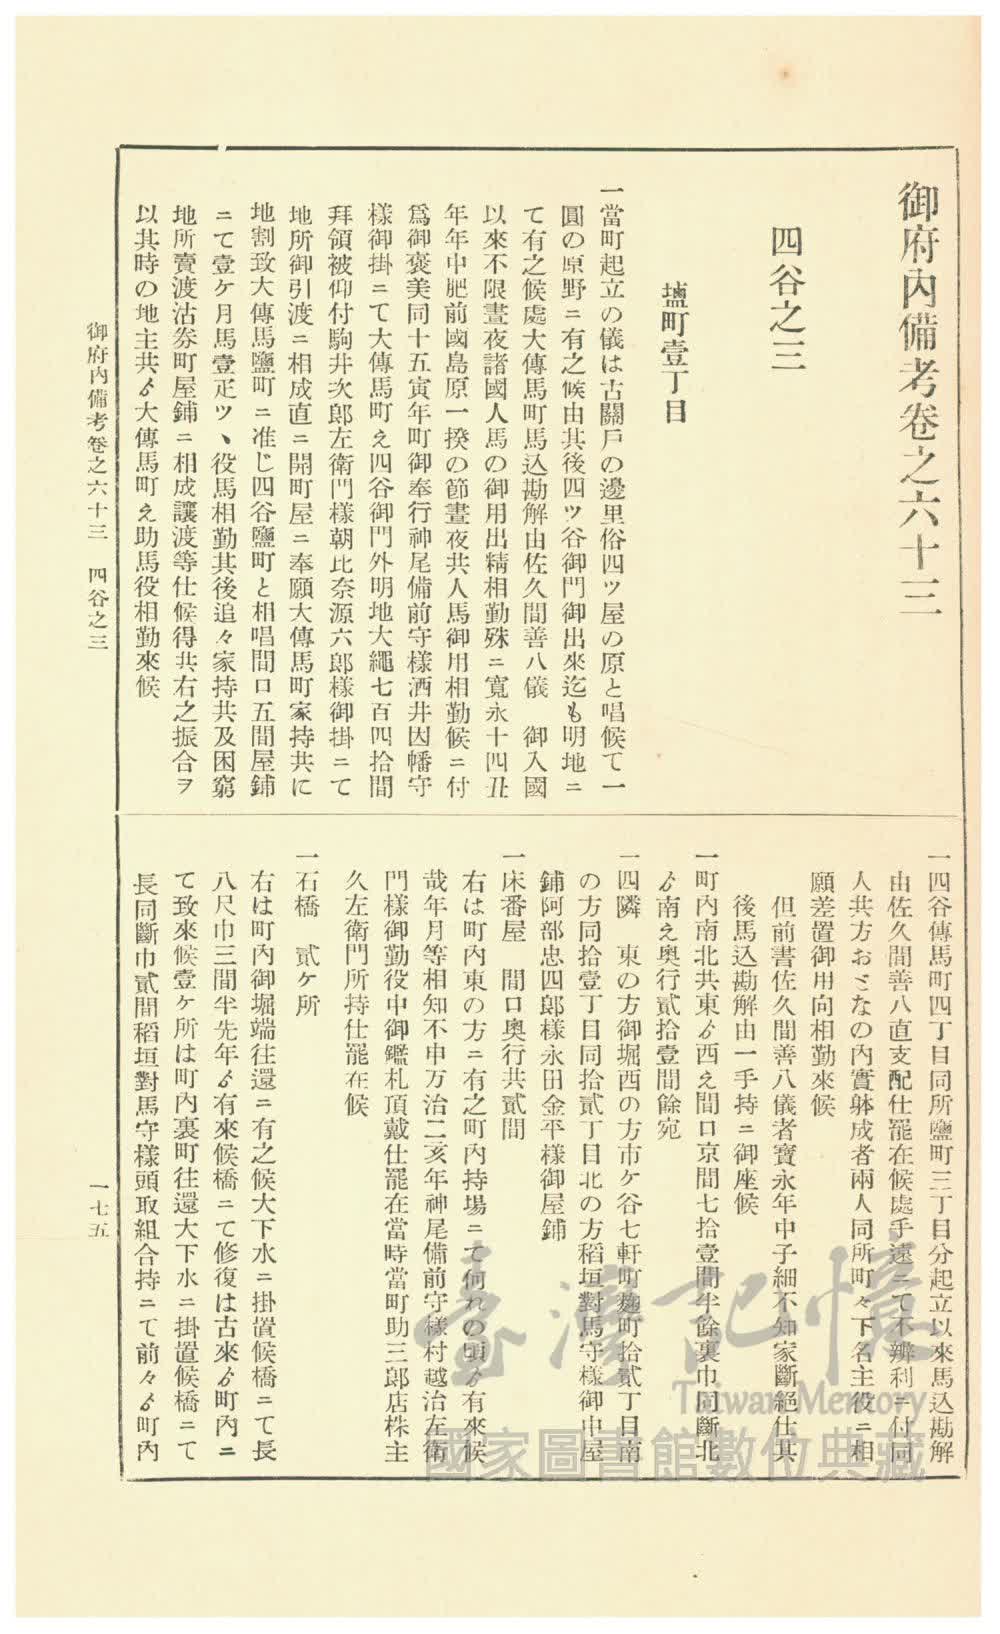 御府內備考卷之六十三
四谷之三
鹽町壹丁目
一當町起立の儀は古關戶の邊里俗四ツ屋の原と唱候て一
圓の原野ニ有之候由其後四ツ谷御門御出來迄も明地ニ
て有之候處大傳馬町馬込勘解由佐久間善八儀　御入國
以來不限晝夜諸國人馬の御用出精相勤殊ニ寬永十四丑
年年中肥前國島原一揆の節晝夜共人馬御用相勤候ニ付
爲御褒美同十五寅年町御奉行神尾備前守樣酒井因幡守
樣御掛ニて大傳馬町え四谷御門外明地大繩七百四拾間
拜領被仰付駒井次郎左衞門樣朝比奈源六郎樣御掛ニて
地所御引渡ニ相成直ニ開町屋ニ奉願大傳馬町家持共に
地割致大傳馬鹽町ニ准じ四谷鹽町と相唱間口五間屋鋪
ニて壹ケ月馬壹疋ツヽ役馬相勤其後追々家持共及困窮
地所賣渡沽券町屋鋪ニ相成讓渡等仕候得共右之振合ヲ
以其時の地主共ゟ大傳馬町え助馬役相勤來候
一四谷傳馬町四丁目同所鹽町三丁目分起立以來馬込勘解
由佐久間善八直支配仕罷在候處手遠ニて不辨利ニ付同
人共方おとなの內實躰成者兩人同所町々下名主役ニ相
願差置御用向相勤來候
但前書佐久間善八儀者寶永年中子細不知家斷絕仕其
後馬込勘解由一手持ニ御座候
一町內南北共東ゟ西え間口京間七拾壹間半餘裏巾同斷北
ゟ南え奧行貳拾壹間餘宛
一四隣　東の方御堀西の方市ケ谷七軒町麴町拾貳丁目南
の方同拾壹丁目同拾貳丁目北の方稻垣對馬守樣御中屋
鋪阿部忠四郎樣永田金平樣御屋鋪
一床番屋　間口奧行共貳間
右は町內東の方ニ有之町內持場ニて何れの頃ゟ有來候
哉年月等相知不申万治二亥年神尾備前守樣村越治左衞
門樣御勤役中御鑑札頂戴仕罷在當時當町助三郎店株主
久左衞門所持仕罷在候
一石橋　貳ケ所
右は町內御堀端往還ニ有之候大下水ニ掛置候橋ニて長
八尺巾三間半先年ゟ有來候橋ニて修復は古來ゟ町內ニ
て致來候壹ケ所は町內裏町往還大下水ニ掛置候橋ニて
長同斷巾貳間稻垣對馬守樣頭取組合持ニて前々ゟ町內
御府內備考卷之六十三　四谷之三
一七五
臺灣記憶
Taiwan Memory
國家圖書館數位典藏